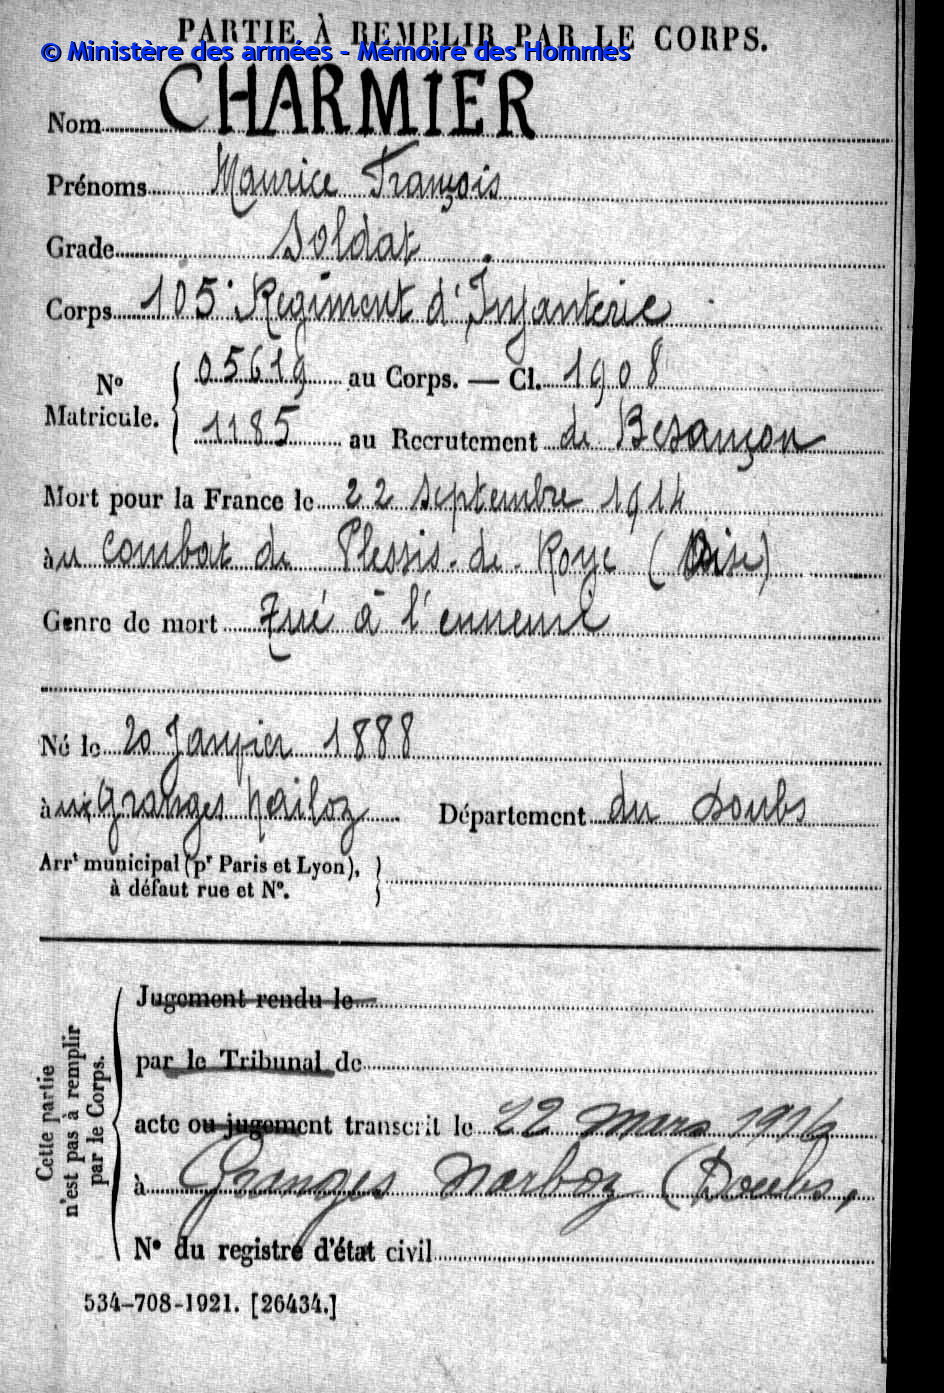 PARTIE À REMPLIR PAR LE CORPS.
© Ministère des armées - Mémoire des Hommes
Nom CHARMIER
Prénoms Maurice François
Grade Soldat
Corps 105e Régiment d'Infanterie
No Matricule. { 05619 au Corps. — Cl. 1908
1185 au Recrutement de Besançon
Mort pour la France le 22 Septembre 1914
àu combat de Plessis-de-Roye (Oise)
Genre de mort Tué à l'ennemi
Né le 20 Janvier 1888
àux Granges Nailoz Département du Doubs
Arrt municipal (pr Paris et Lyon),
à défaut rue et No.
Cette partie
n'est pas à remplir
par le Corps.
Jugement rendu le
par le Tribunal de
acte ou jugement transcrit le 22 mars 1916
à Granges Narboz (Doubs,
No du registre d'état civil
534-708-1921. [26434.]